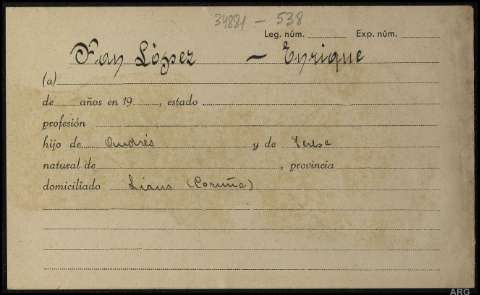 34881 - 538
Leg. núm. Exp. núm.
López - Enrique
(a)
de años en 19 , estado
profesión
hijo de Andrés y de Teresa
natural de , provincia
domiciliado Lians (Coruña)
ARG